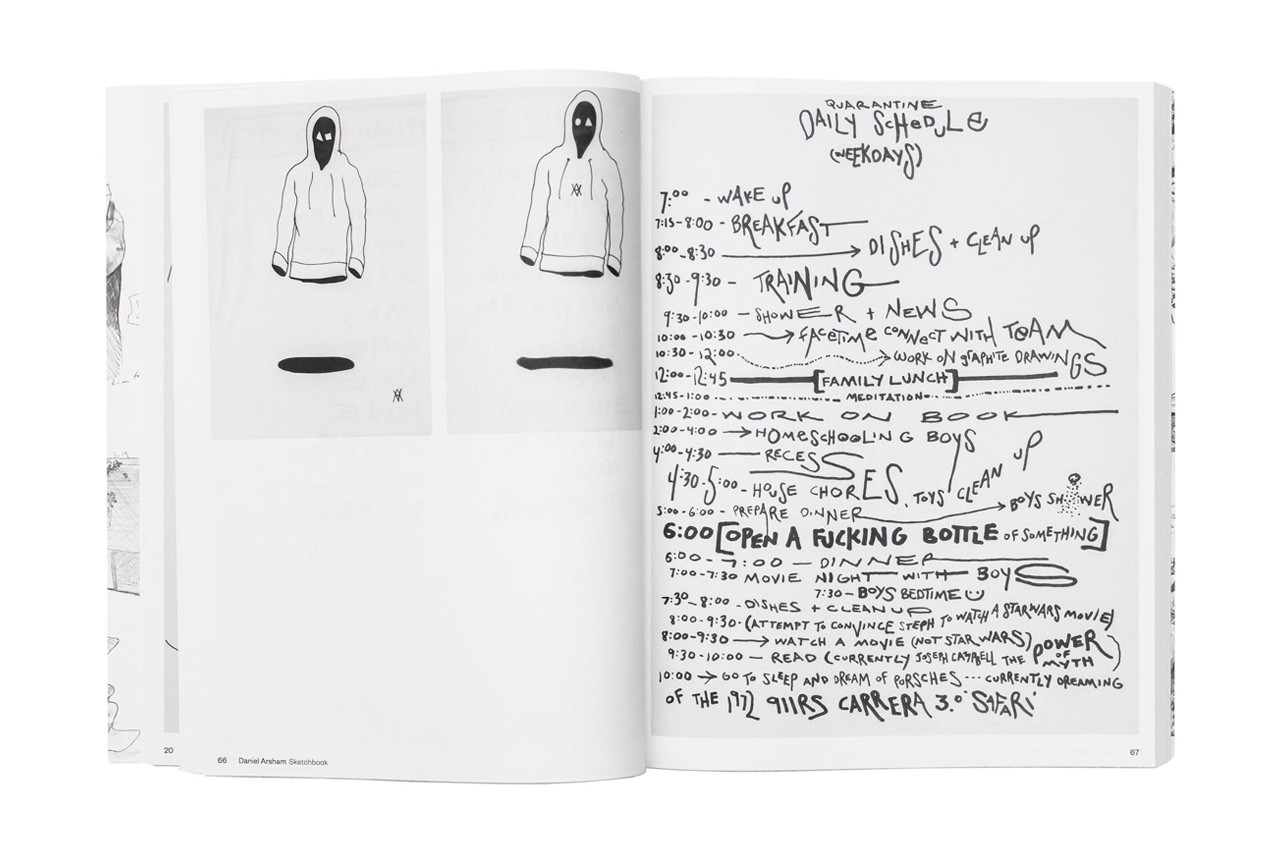 20
66 Daniel Arsham Sketchbook
QUARANTINE
DAILY SCHEDULE
(WEEKDAYS)
7:00 - WAKE UP
7:15-8:00 - BREAKFAST
8:00-8:30 → DISHES + CLEAN UP
8:30-9:30 - TRAINING
9:30-10:00 - SHOWER + NEWS
10:00-10:30 → FACETIME CONNECT WITH TEAM
10:30-12:00 → WORK ON GRAPHITE DRAWINGS
12:00-12:45 [FAMILY LUNCH]
12:45-1:00 MEDITATION
1:00-2:00 - WORK ON BOOK
2:00-4:00 → HOMESCHOOLING BOYS
4:00-4:30 RECESS
4:30-5:00 - HOUSE CHORES, TOYS CLEAN UP
5:00-6:00 - PREPARE DINNER → BOYS SHOWER
6:00 [OPEN A FUCKING BOTTLE OF SOMETHING]
6:00-7:00 - DINNER
7:00-7:30 MOVIE NIGHT WITH BOYS
7:30 - BOYS BEDTIME
7:30-8:00 - DISHES + CLEAN UP
8:00-9:30 - (ATTEMPT TO CONVINCE STEPH TO WATCH A STARWARS MOVIE)
8:00-9:30 → WATCH A MOVIE (NOT STAR WARS)
9:30-10:00 - READ (CURRENTLY JOSEPH CAMPBELL THE POWER OF MYTH)
10:00 → GO TO SLEEP AND DREAM OF PORSCHES --- CURRENTLY DREAMING
OF THE 1972 911RS CARRERA 3.0 'SAFARI'
67